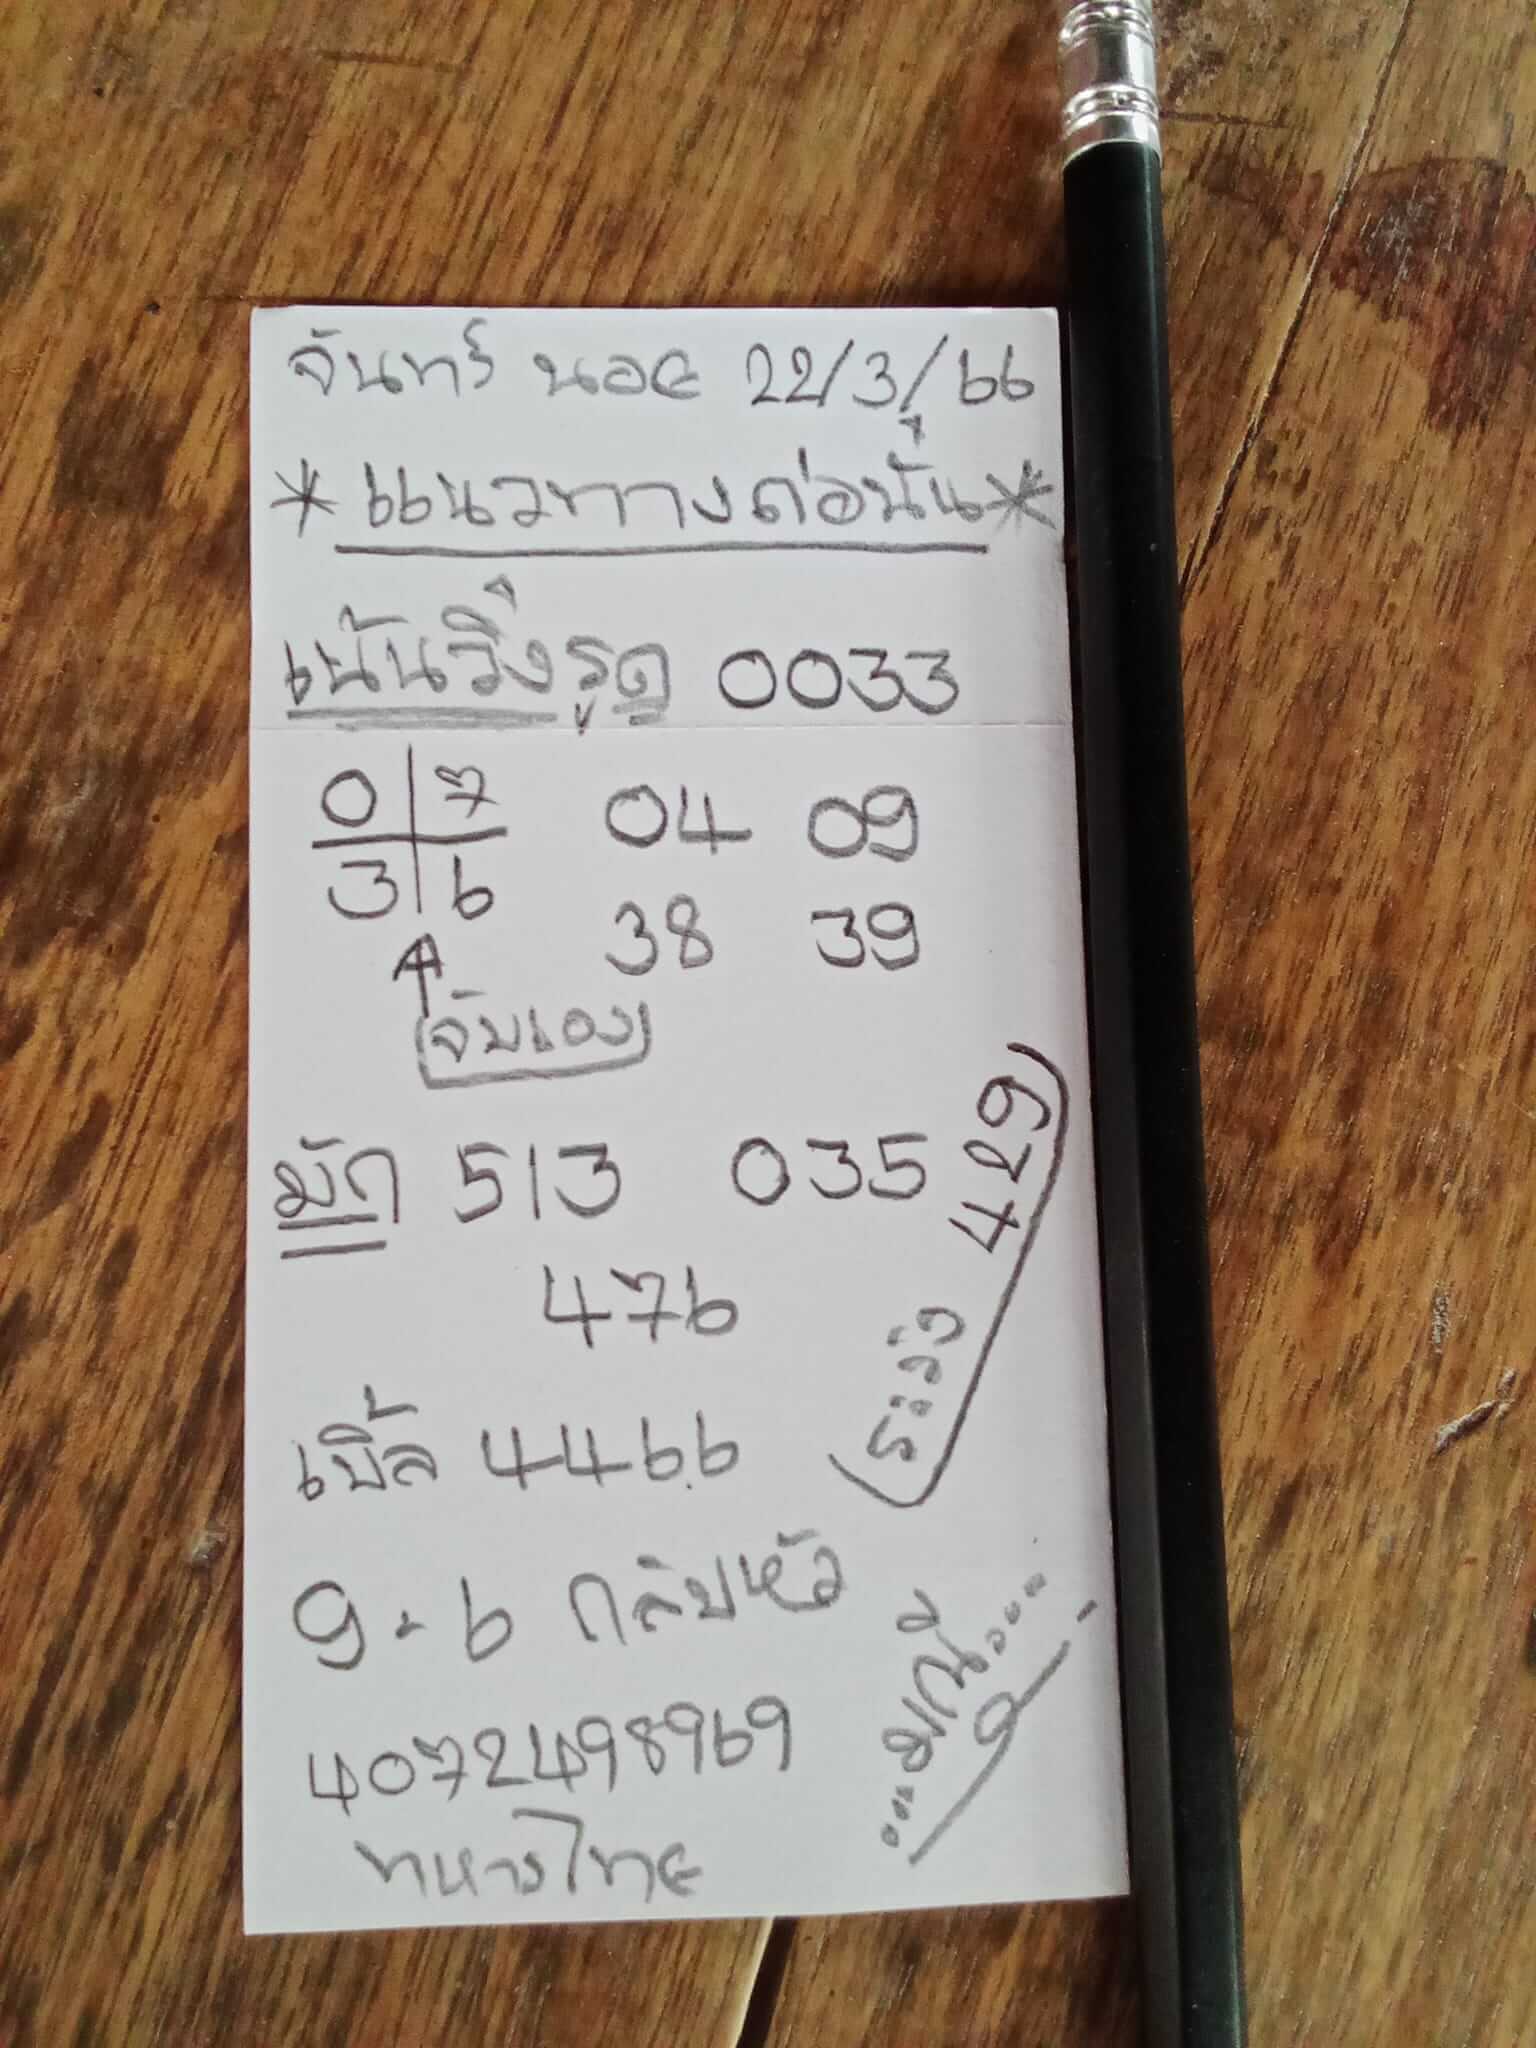 จันทร์ นอย 22/3/66
* แนวทางต่อนั้น *
เน้นวิ่งรูด 0033
0 7 04 09
3 6 38 39
จับเอง
มัก 513 035
476
ระวัง 429
เบิ้ล 4466
9-6 กลับหัว
4072498969
ทหารไทย
...มณี...